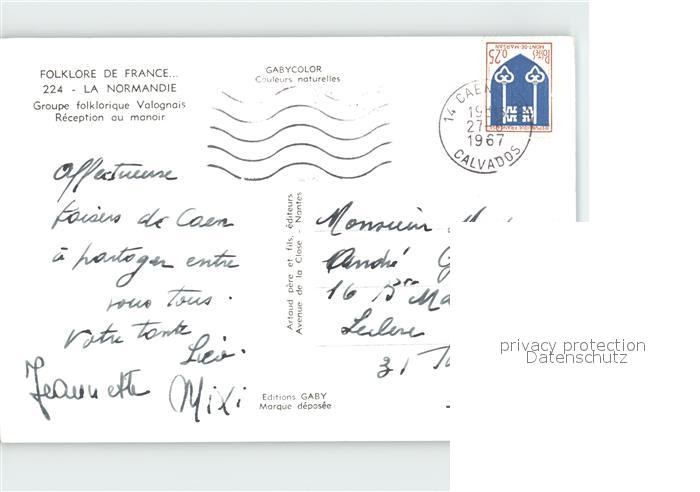 FOLKLORE DE FRANCE...
224 - LA NORMANDIE
Groupe folklorique Valognais
Réception au manoir
GABYCOLOR
Couleurs naturelles
0,25 POSTES
MONT-DE-MARSAN
REPUBLIQUE FRANÇAISE
14 CAEN
19H
27-
1967
CALVADOS
Affectueuse
baisers de Caen
à partager entre
vous tous.
Votre tante
Jeannette Mixi
Artaud père et fils, éditeurs
Avenue de la Close - Nantes
Monsieur
André G
16 Bre Ma
Leclerc
31
Editions GABY
Marque déposée
privacy protection
Datenschutz